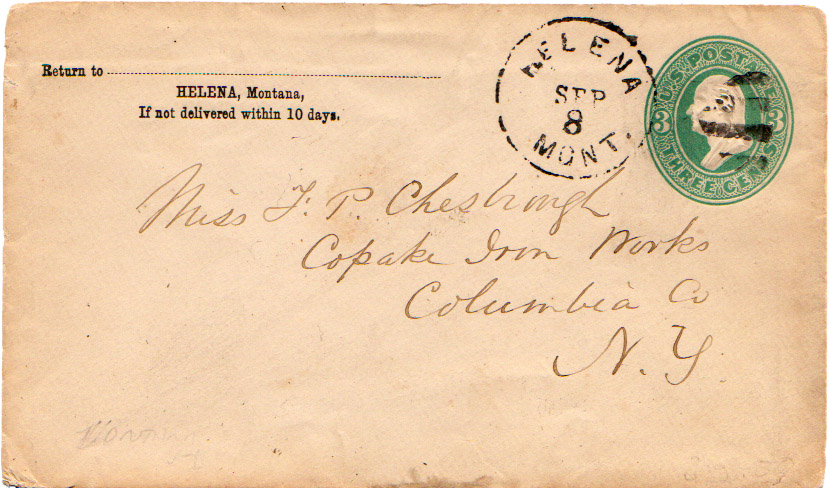 Return to
HELENA, Montana,
If not delivered within 10 days.
HELENA
SEP
8
MONT.
U.S. POSTAGE
3 3
THREE CENTS
Miss F. P. Chesbrough
Copake Iron Works
Columbia Co
N. Y.